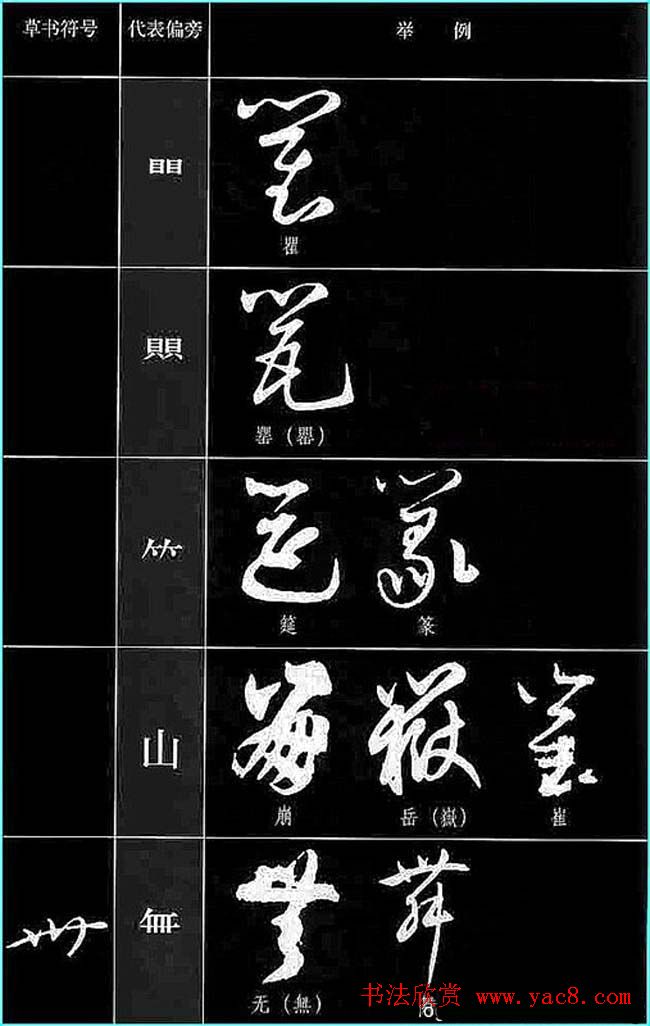 草书符号 代表偏旁 举例
瞿
賏
罂（罌）
⺮
筵 篆
山
崩 岳（嶽） 崔
無
无（無）
书法欣赏 www.yac8.com